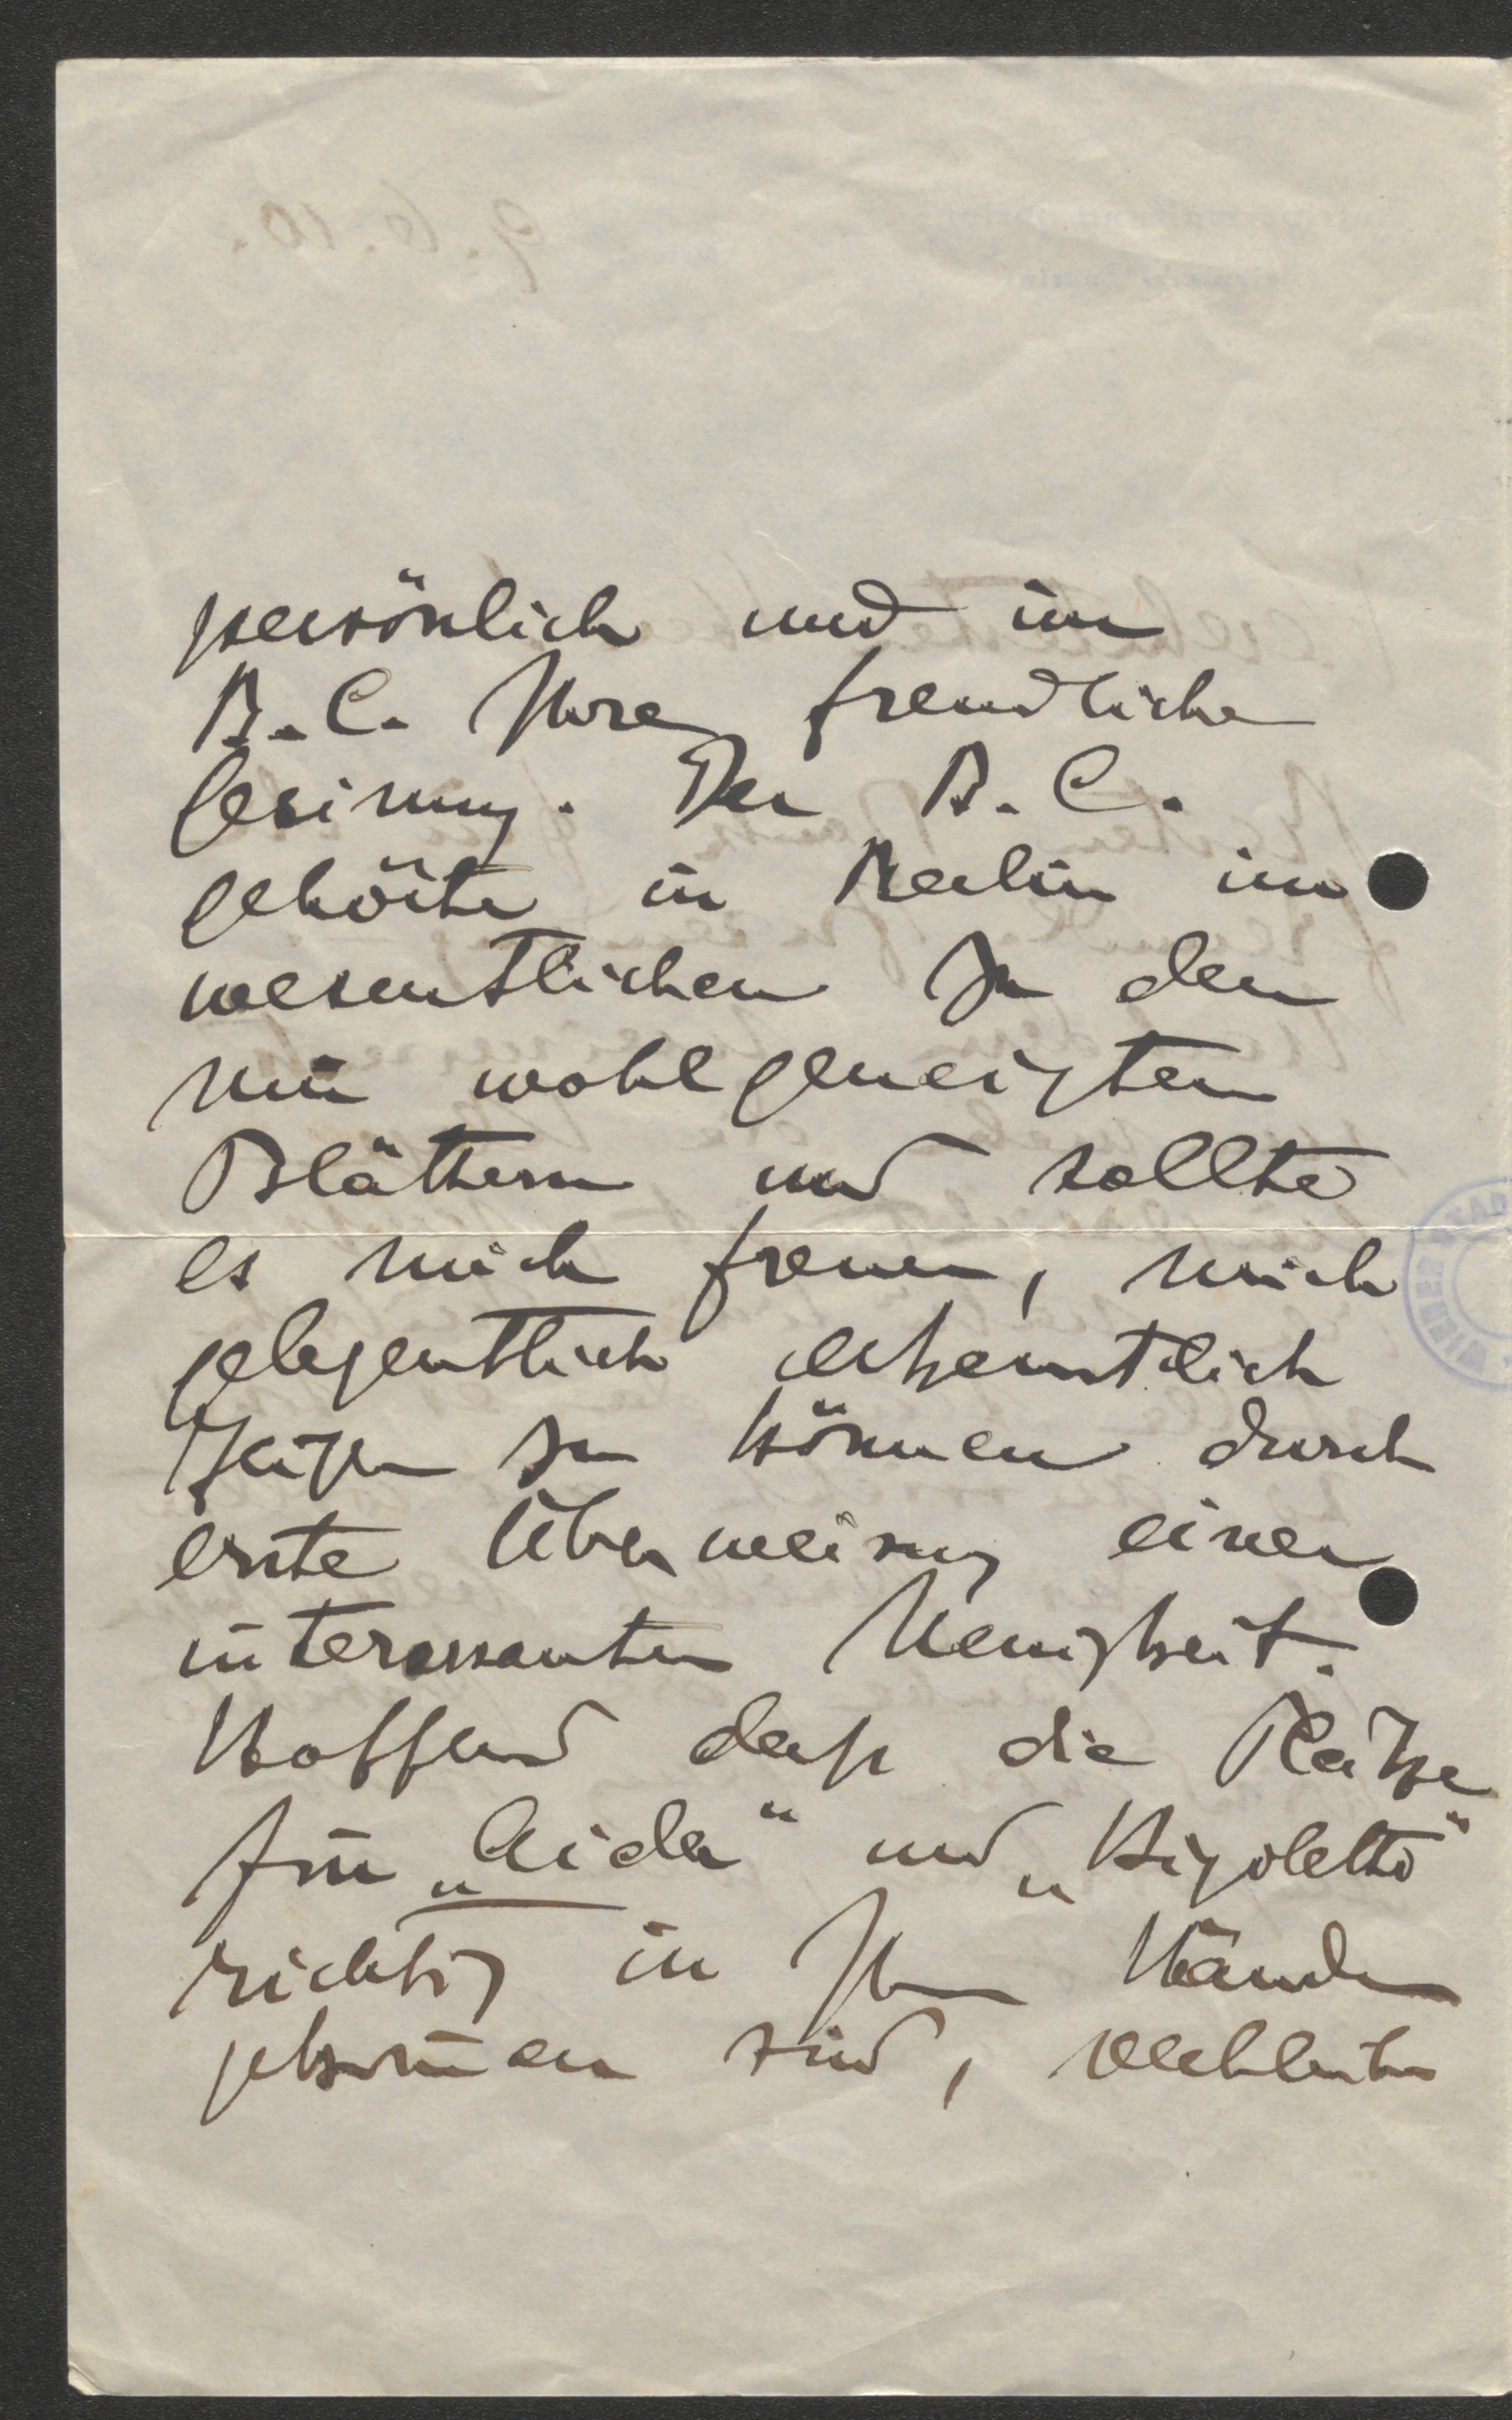 persönlich und im
B. C. Ihre freundliche
Gesinnung. Der B. C.
gehörte in Berlin im
wesentlichen zu den
mir wohlgeneigten
Blättern und sollte
es mich freuen, mich
gelegentlich erkenntlich
zeigen zu können durch
erste Überweisung einer
interessanten Neuigkeit.
Hoffend daß die Plätze
für „Aida“ und „Rigoletto“
richtig in Ihre Hände
gekom̄en sind,
9. 6. 10.
WIENER STAD